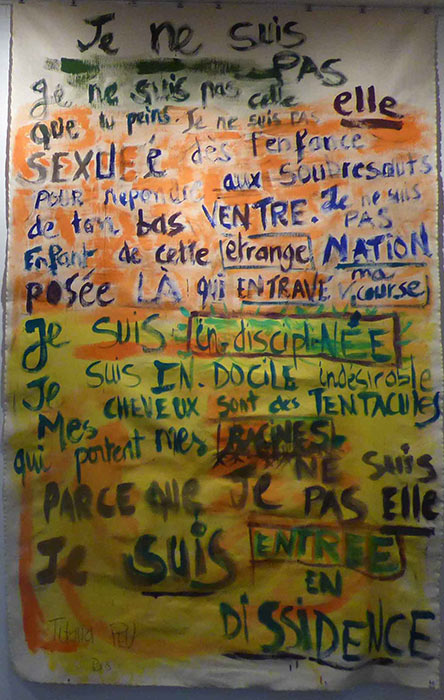 Je ne suis
PAS
Je ne suis pas celle
que tu peins. Je ne suis PAS elle
SEXUEÉ dès l'enfance
POUR répondre aux soubresauts
de ton bas VENTRE. Je ne suis PAS
Enfant de cette étrange NATION
POSÉE LÀ qui ENTRAVE ma course
Je SUIS in-disciplINÉE
Je SUIS IN.DOCILE indésirable
Mes CHEVEUX sont des TENTACULES
qui portent mes RACINES
PARCE QUE Je NE SUIS PAS Elle
Je SUIS ENTRÉE
EN
DISSIDENCE